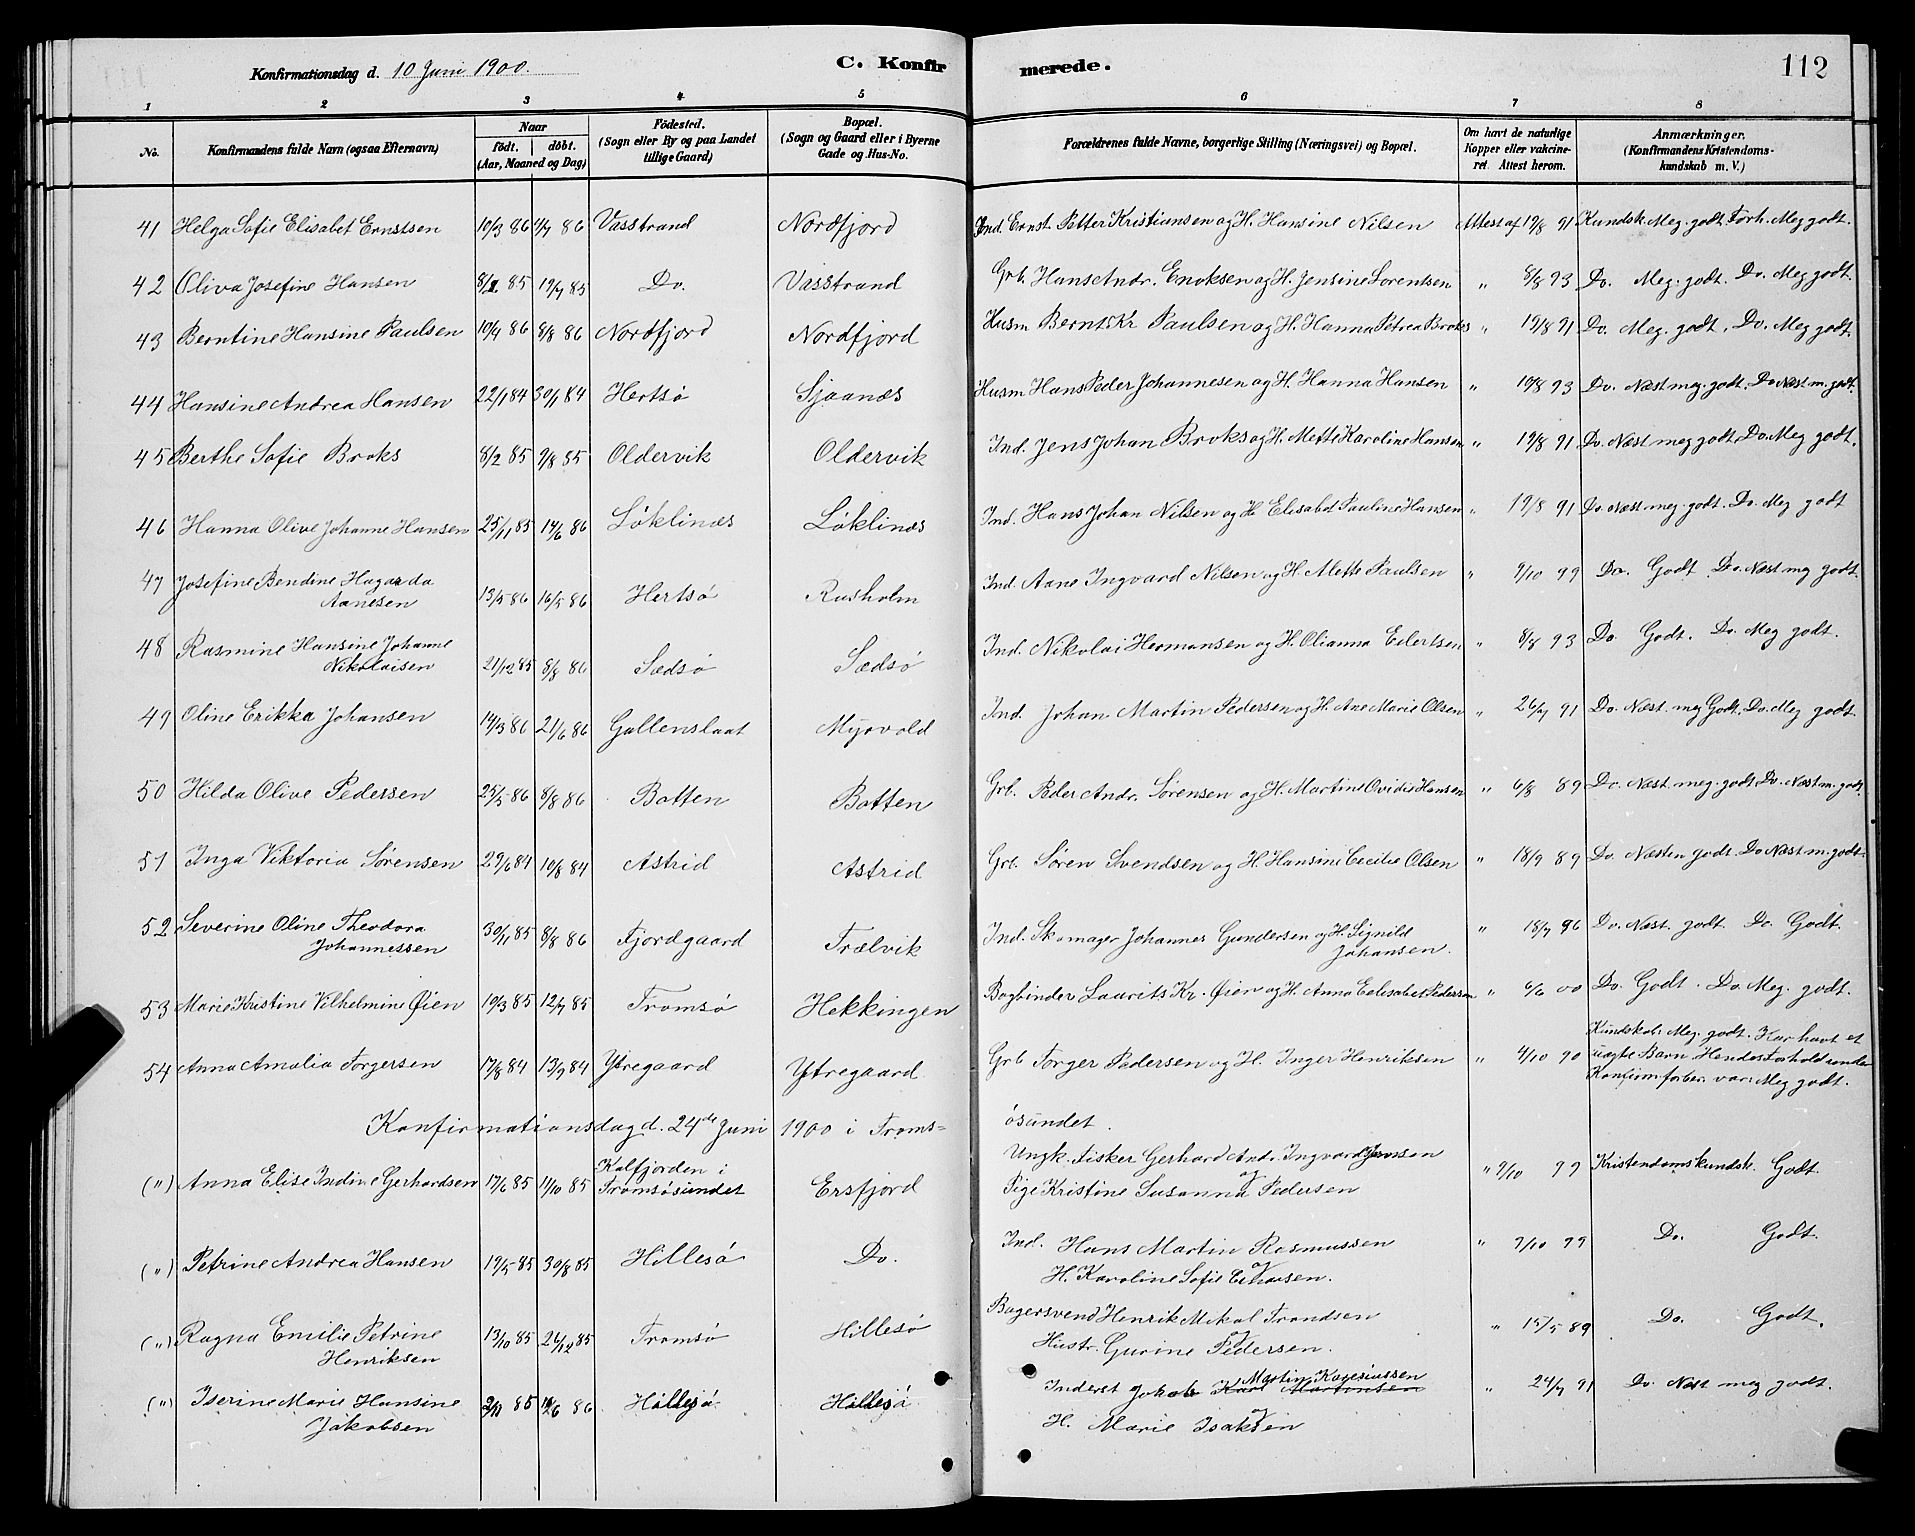 Konfirmationsdag d. 10 Juni 1900. C. Konfirmerede. 112
1 2 3 4 5 6 7 8
No. Konfirmandens fulde Navn (ogsaa Efternavn) Naar født. døbt. (Aar, Maaned og Dag) Fødested. (Sogn eller By og paa Landet tillige Gaard) Bopæl. (Sogn og Gaard eller i Byerne Gade og Hus-No. Forældrenes fulde Navne, borgerlige Stilling (Næringsvei) og Bopæl. Om havt de naturlige Kopper eller vakcineret. Attest herom. Anmærkninger. (Konfirmandens Kristendomskundskab m. V.)
41 Helga Sofie Elisabet Ernstsen 10/3 86 4/7 86 Vasstrand Nordfjord Ind. Ernst Petter Kristiansen og H. Hansine Nilsen Attest af 19/8 91 Kundsk. Meg. godt. Forh. Meg godt.
42 Oliva Josefine Hansen 85 19/7 85 Do. Vasstrand Grb. Hans Andr. Enoksen og H. Jensine Sorentsen " 8/8 93 Do. Meg. godt. Do. Meg godt.
43 Berntine Hansine Paulsen 10/4 86 8/8 86 Nordfjord Nordfjord Husm Bernt Kr Paulsen og H. Hanna Petrea Broks " 19/8 91 Do. Meg. godt. Do. Meg godt.
44 Hansine Andrea Hansen 22/1 84 30/1 84 Hertsø Sjaanæs Husm Hans Peder Johannesen og H. Hanna Hansen " 19/8 93 Do. Næst meg. godt. Do Næst m. godt.
45 Berthe Sofie Broks 8/2 85 9/8 85 Oldervik Oldervik Ind. Jens Johan Broks og H. Mette Karoline Hansen " 19/8 91 Do. Næst meg godt. Do. Meg godt.
46 Hanna Olive Johanne Hansen 25/11 85 14/6 86 Løklinæs Løklinæs Ind. Hans Johan Nilsen og H Elisabet Pauline Hansen " 19/8 91 Do. Næst meg. godt. Do. Meg godt
47 Josefine Bendine Hagarda
Aanesen 13/5 86 16/5 86 Hertsø Rusholm Ind. Aane Ingvard Nilsen og H. Mette Paulsen " 9/10 99 Do. Godt. Do. Næst meg godt.
48 Rasmine Hansine Johanne
Nikolaisen 21/12 85 8/8 86 Sædsø Sædsø Ind. Nikolai Hermansen og H. Olianna Eilertsen " 8/8 93 Do. Godt. Do. Meg godt.
49 Oline Erikka Johansen 14/3 86 21/6 86 Gallenslaat Myrvold Ind. Johan Martin Pedersen og H. Ane Marie Olsen " 26/7 91 Do. Næst. meg Godt. Do. Meg godt.
50 Hilda Olive Pedersen 25/5 86 8/8 86 Botten Botten Grb. Peder Andr. Sørensen og H. Martine Ovidie Hansen " 6/8 89 Do. Næst. meg. godt Do. Næst m. godt.
51 Inga Viktoria Sørensen 29/6 84 10/8 84 Astrid Astrid Grb. Søren Svendsen og H. Hansine Cecilie Olsen " 18/9 89 Do. Næsten godt. Do Næst m. godt.
52 Severine Oline Theodora
Johannessen 30/1 85 8/8 86 Fjordgaard Trælvik Ind. Skomager Johannes Gundersen og H. Signild Johansen. " 18/7 96 Do. Næst. godt. Do. Godt.
53 Marie Kristine Vilhelmine Øien 19/3 85 12/7 85 Tromsø Hekkingen Bogbinder Laurits Kr. Øien og H. Anna Eelisabet Pedersen " 6/6 00 Do. Godt. Do. Meg. godt.
54 Anna Amalia Torgersen 17/8 84 13/9 84 Ytregaard Ytregaard Grb Torger Pedersen og H. Inger Henriksen " 4/10 90 Kundskab. Meg. godt. Har havt et uægte Barn Hendes Forhold under Konfirm.forber. var: Meg godt.
Konfirmationsdag d. 24de Juni 1900 i Tromsøsundet.
(") Anna Elise Indine Gerhardsen 17/6 85 11/10 85 Kalfjorden i Tromsøsundet Ersfjord Ungk. Fisker Gerhard Andr. Ingvard Jensen og
Pige Kristine Susanna Pedersen " 9/10 99 Kristendomskundsk. Godt.
(") Petrine Andrea Hansen 19/5 85 30/8 85 Hillesø Do. Ind. Hans Martin Rasmussen og
H. Karoline Sofie " 9/10 99 Do. Godt.
(") Ragna Emilie Petrine
Henriksen 13/10 85 26/12 85 Tromsø Hillesø Bagersvend Henrik Mikal Trondsen
Hustr. Gurine Pedersen. " 15/5 89 Do. Godt.
(") Iserine Marie Hansine
Jakobsen 85 86 Hillesø Hillesø Inderst Jakob Karl Martinsen Martin og
H. Marie Isaksen " 24/7 91 Do. Næst meg godt.